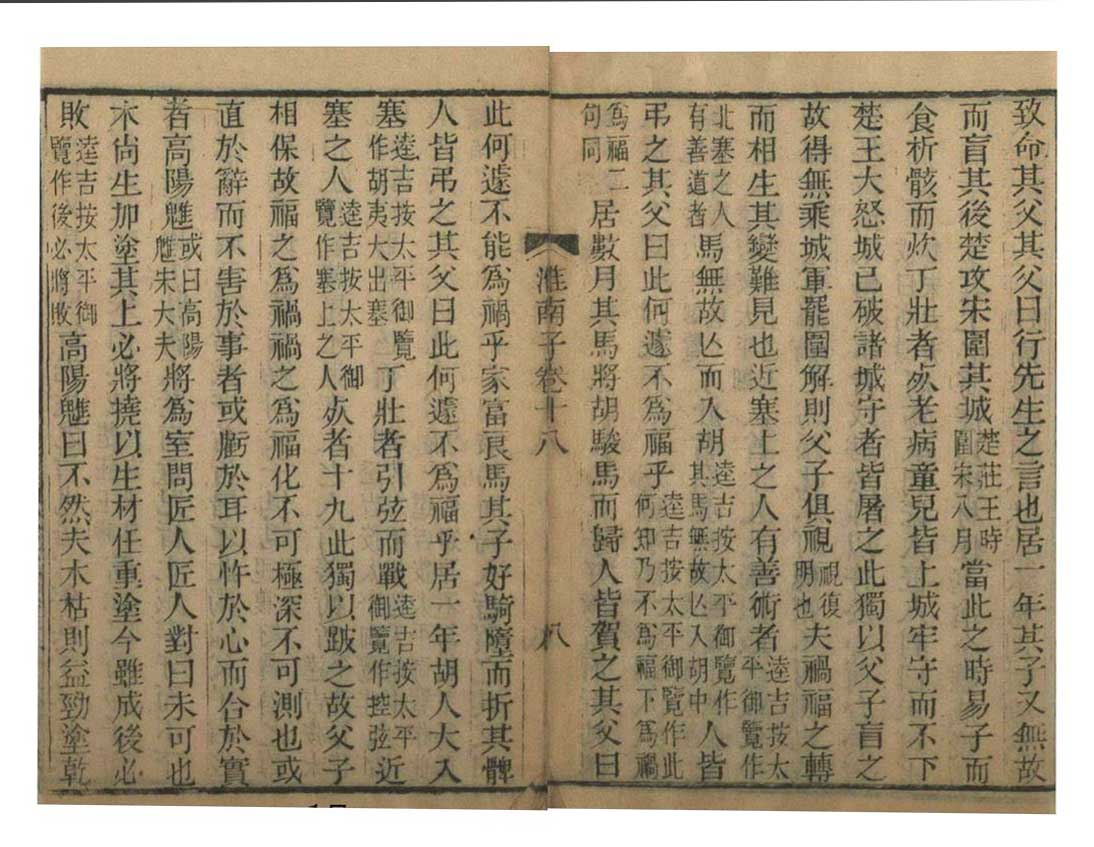 致命其父其父曰行先生之言也居一年其子又無故
而盲其後楚攻宋圍其城楚莊王時圍宋八月當此之時易子而
食析骸而炊丁壯者死老病童兒皆上城牢守而不下
楚王大怒城已破諸城守者皆屠之此獨以父子盲之
故得無乘城軍罷圍解則父子俱視視復明也夫禍福之轉
而相生其變難見也近塞上之人有善術者逵吉按太平御覽作
北塞之人有善道者馬無故亡而入胡逵吉按太平御覽作其馬無故亡入胡中人皆
弔之其父曰此何遽不爲福乎逵吉按太平御覽作此何知乃不爲福下爲禍
爲福二何同居數月其馬將胡駿馬而歸人皆賀之其父曰
淮南子卷十八
八
此何遽不能爲禍乎家富良馬其子好騎墮而折其髀
人皆弔之其父曰此何遽不爲福乎居一年胡人大入
塞逵吉按太平御覽作胡夷大出塞丁壯者引弦而戰逵吉按太平御覽作控弦近
塞之人逵吉按太平御覽作塞上之人死者十九此獨以跛之故父子
相保故福之爲禍禍之爲福化不可極深不可測也或
直於辭而不害於事者或虧於耳以忤於心而合於實
者高陽魋或曰高陽魋宋大夫將爲室問匠人匠人對曰未可也
木尚生加塗其上必將撓以生材任重塗今雖成後必
敗逵吉按太平御覽作後必將敗高陽魋曰不然夫木枯則益勁塗乾